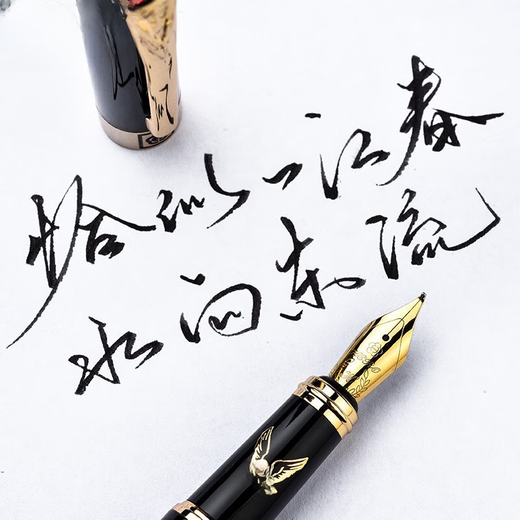 恰似一江春
水向东流